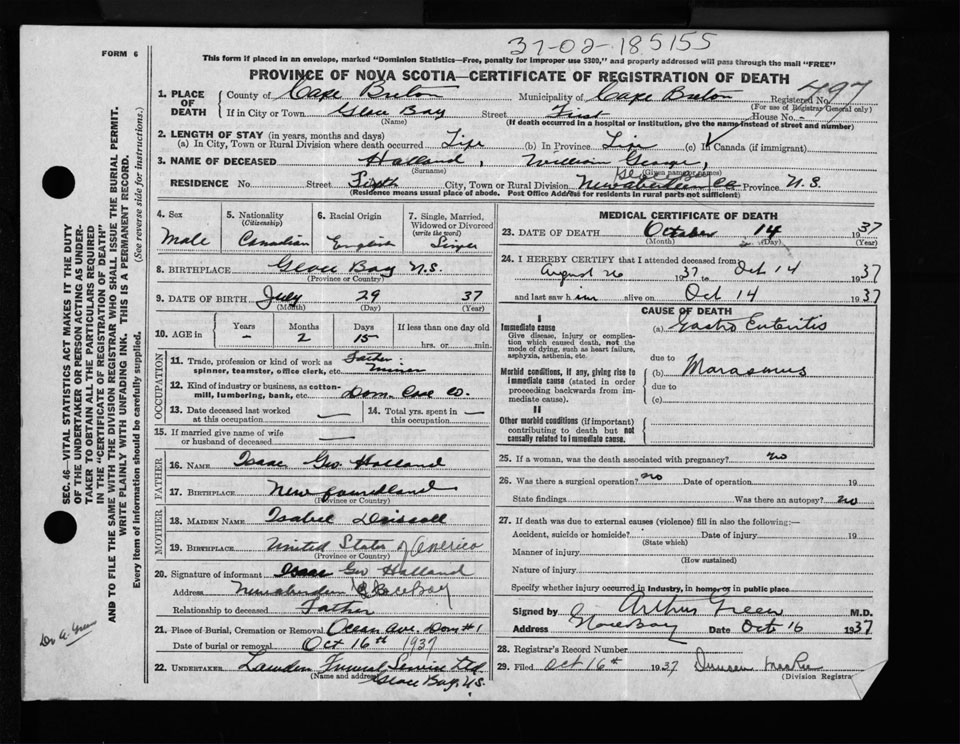 FORM 6
37-02-185155
This form if placed in an envelope, marked "Dominion Statistics—Free, penalty for improper use $300," and properly addressed will pass through the mail "FREE"
PROVINCE OF NOVA SCOTIA—CERTIFICATE OF REGISTRATION OF DEATH
497
1. PLACE OF DEATH County of Cape Breton Municipality of Cape Breton Registered No.
(For use of Registrar General only)
If in City or Town Glace Bay Street First House No. -
(Name) (If death occurred in a hospital or institution, give the name instead of street and number)
2. LENGTH OF STAY (in years, months and days)
(a) In City, Town or Rural Division where death occurred Life (b) In Province Life (c) In Canada (if immigrant)
3. NAME OF DECEASED Holland, William George,
(Surname) (Given name or names)
RESIDENCE No. Street City, Town or Rural Division New Aberdeen Province N.S.
(Residence means usual place of abode. Post Office Address for residents in rural parts not sufficient)
4. Sex 5. Nationality (Citizenship) 6. Racial Origin 7. Single, Married, Widowed or Divorced (write the word)
Male Canadian English Single
8. BIRTHPLACE Glace Bay N.S.
(Province or Country)
9. DATE OF BIRTH July 29 37
(Month) (Day) (Year)
10. AGE in Years Months Days If less than one day old
- 2 15 hrs. or min.
OCCUPATION
11. Trade, profession or kind of work as spinner, teamster, office clerk, etc. Father: miner
12. Kind of industry or business, as cotton-mill, lumbering, bank, etc. Dom. Coal Co.
13. Date deceased last worked at this occupation — 14. Total yrs. spent in this occupation —
15. If married give name of wife or husband of deceased —
FATHER
16. NAME Isaac Geo. Holland
17. BIRTHPLACE Newfoundland
(Province or Country)
MOTHER
18. MAIDEN NAME Isabel Driscoll
19. BIRTHPLACE United States of America
(Province or Country)
20. Signature of informant Isaac Geo Holland
Address New Aberdeen Glace Bay
Relationship to deceased Father
21. Place of Burial, Cremation or Removal Ocean Ave. Dom #1
Date of burial or removal Oct 16th 1937
22. UNDERTAKER Funeral Service Ltd
(Name and address) Glace Bay, N.S.
MEDICAL CERTIFICATE OF DEATH
23. DATE OF DEATH October 14 1937
(Month) (Day) (Year)
24. I HEREBY CERTIFY that I attended deceased from:
August 26 1937 to Oct 14 1937
and last saw him alive on Oct 14 1937
CAUSE OF DEATH
I
Immediate cause (a) Gastro Enteritis
Give disease, injury or complication which caused death, not the mode of dying, such as heart failure, asphyxia, asthenia, etc.
due to
Morbid conditions, if any, giving rise to immediate cause (stated in order proceeding backwards from immediate cause). (b) Marasmus
due to
(c)
II
Other morbid conditions (if important) contributing to death but not causally related to immediate cause.
25. If a woman, was the death associated with pregnancy? no
26. Was there a surgical operation? no Date of operation 19
State findings Was there an autopsy? no
27. If death was due to external causes (violence) fill in also the following:—
Accident, suicide or homicide? Date of injury 19
(State which)
Manner of injury
(How sustained)
Nature of injury
Specify whether injury occurred in industry, in home, or in public place
Signed by Arthur Green M.D.
Address Glace Bay Date Oct 16 1937
28. Registrar's Record Number
29. Filed Oct 16th 1937 Duncan MacRae
(Division Registrar)
SEC. 46—VITAL STATISTICS ACT MAKES IT THE DUTY
OF THE UNDERTAKER OR PERSON ACTING AS UNDER-
TAKER TO OBTAIN ALL THE PARTICULARS REQUIRED
IN THE "CERTIFICATE OF REGISTRATION OF DEATH"
AND TO FILE THE SAME WITH THE DIVISION REGISTRAR WHO SHALL ISSUE THE BURIAL PERMIT.
WRITE PLAINLY WITH UNFADING INK. THIS IS A PERMANENT RECORD.
Every item of information should be carefully supplied. (See reverse side for instructions.)
Dr A. Green